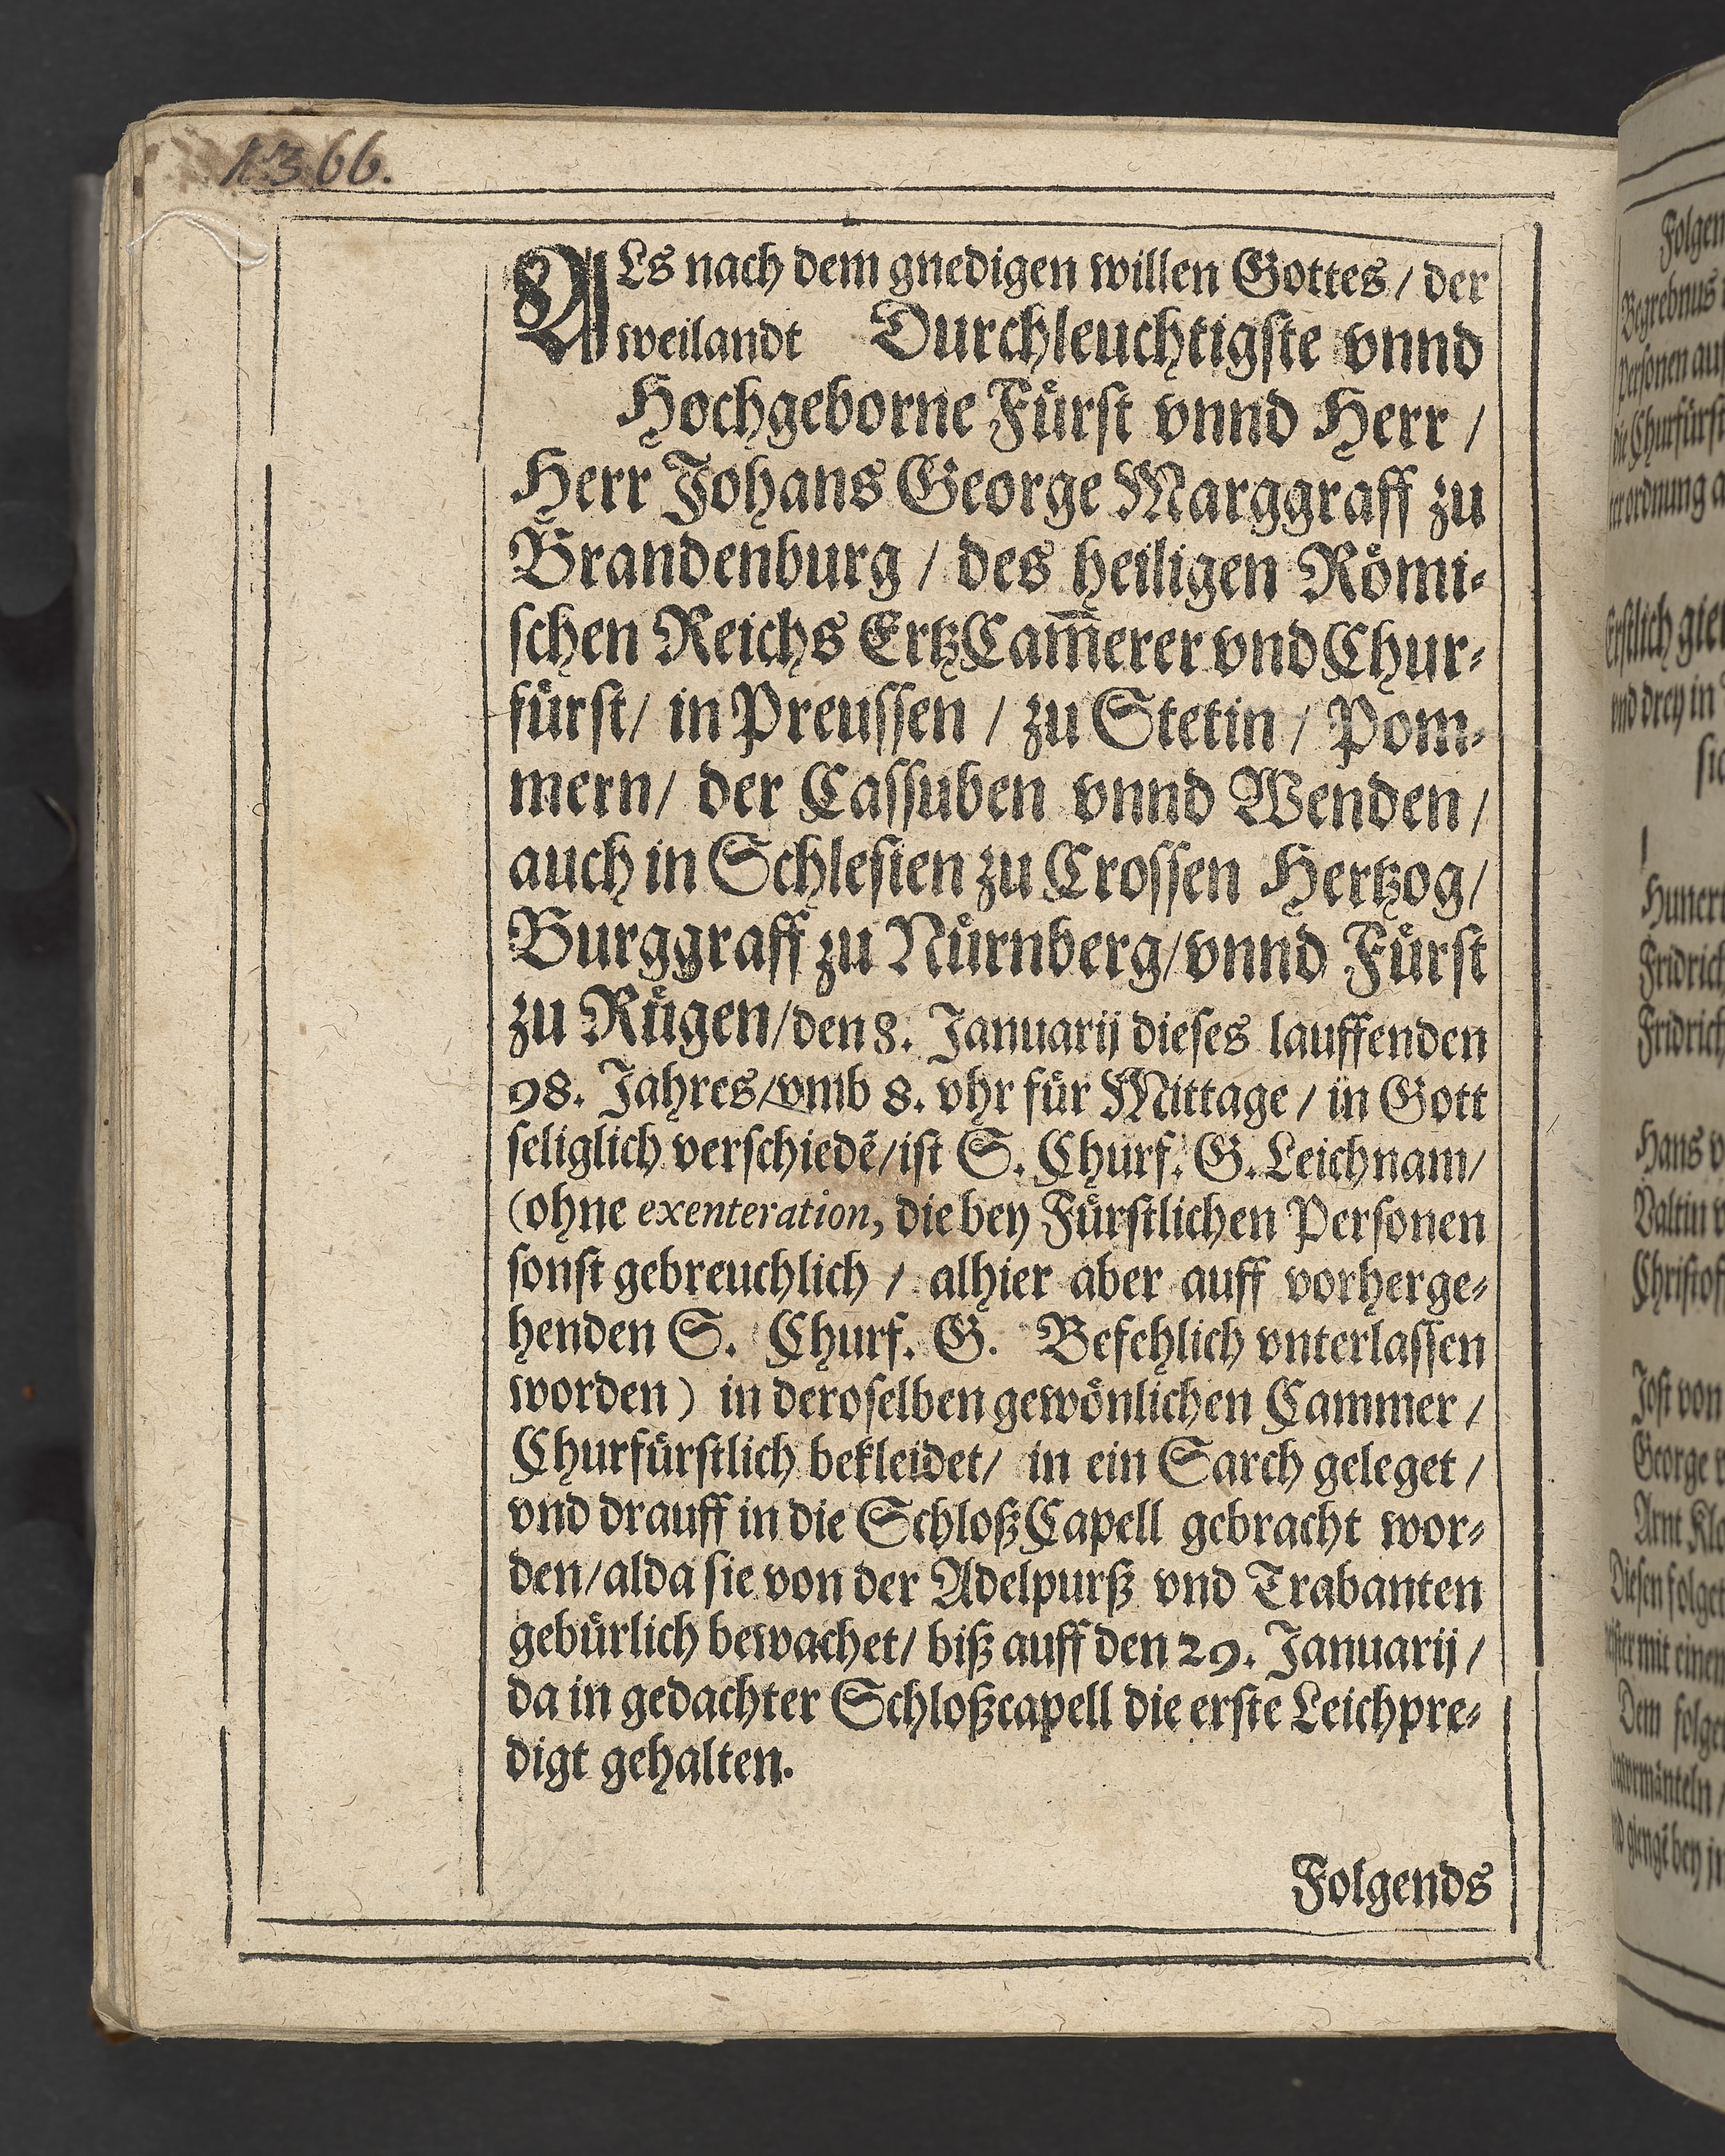 1366.
ALs nach dem gnedigen willen Gottes / der
weilandt Durchleuchtigste vnnd
Hochgeborne Fürst vnnd Herr /
Herr Johans George Marggraff zu
Brandenburg / des heiligen Römi-
schen Reichs ErtzCam̅erer vnd Chur-
fürst / in Preussen / zu Stetin / Pom-
mern / der Cassuben vnnd Wenden /
auch in Schlesien zu Crossen Hertzog /
Burggraff zu Nürnberg / vnnd Fürst
zu Rügen / den 8. Januarij dieses lauffenden
98. Jahres / vmb 8. vhr für Mittage / in Gott
seliglich verschiedẽ / ist S. Churf. G. Leichnam /
(ohne exenteration, die bey Fürstlichen Personen
sonst gebreuchlich / alhier aber auff vorherge-
henden S. Churf. G. Befehlich vnterlassen
worden) in deroselben gewönlichen Cammer /
Churfürstlich bekleidet / in ein Sarch geleget /
vnd drauff in die SchloßCapell gebracht wor-
den / alda sie von der Adelpurß vnd Trabanten
gebürlich bewachet / biß auff den 29. Januarij /
da in gedachter Schloßcapell die erste Leichpre-
digt gehalten.
Folgends
Folgen
Begrebnus
Personen auf
die Churfürst
ordnung a
Erstlich gien
vnd drey in
Hunert
Fridrich
Fridrich
Hans v
Valtin v
Christof
Jost von
George v
Arnt Klo
Diesen folget
mit einem
Dem folger